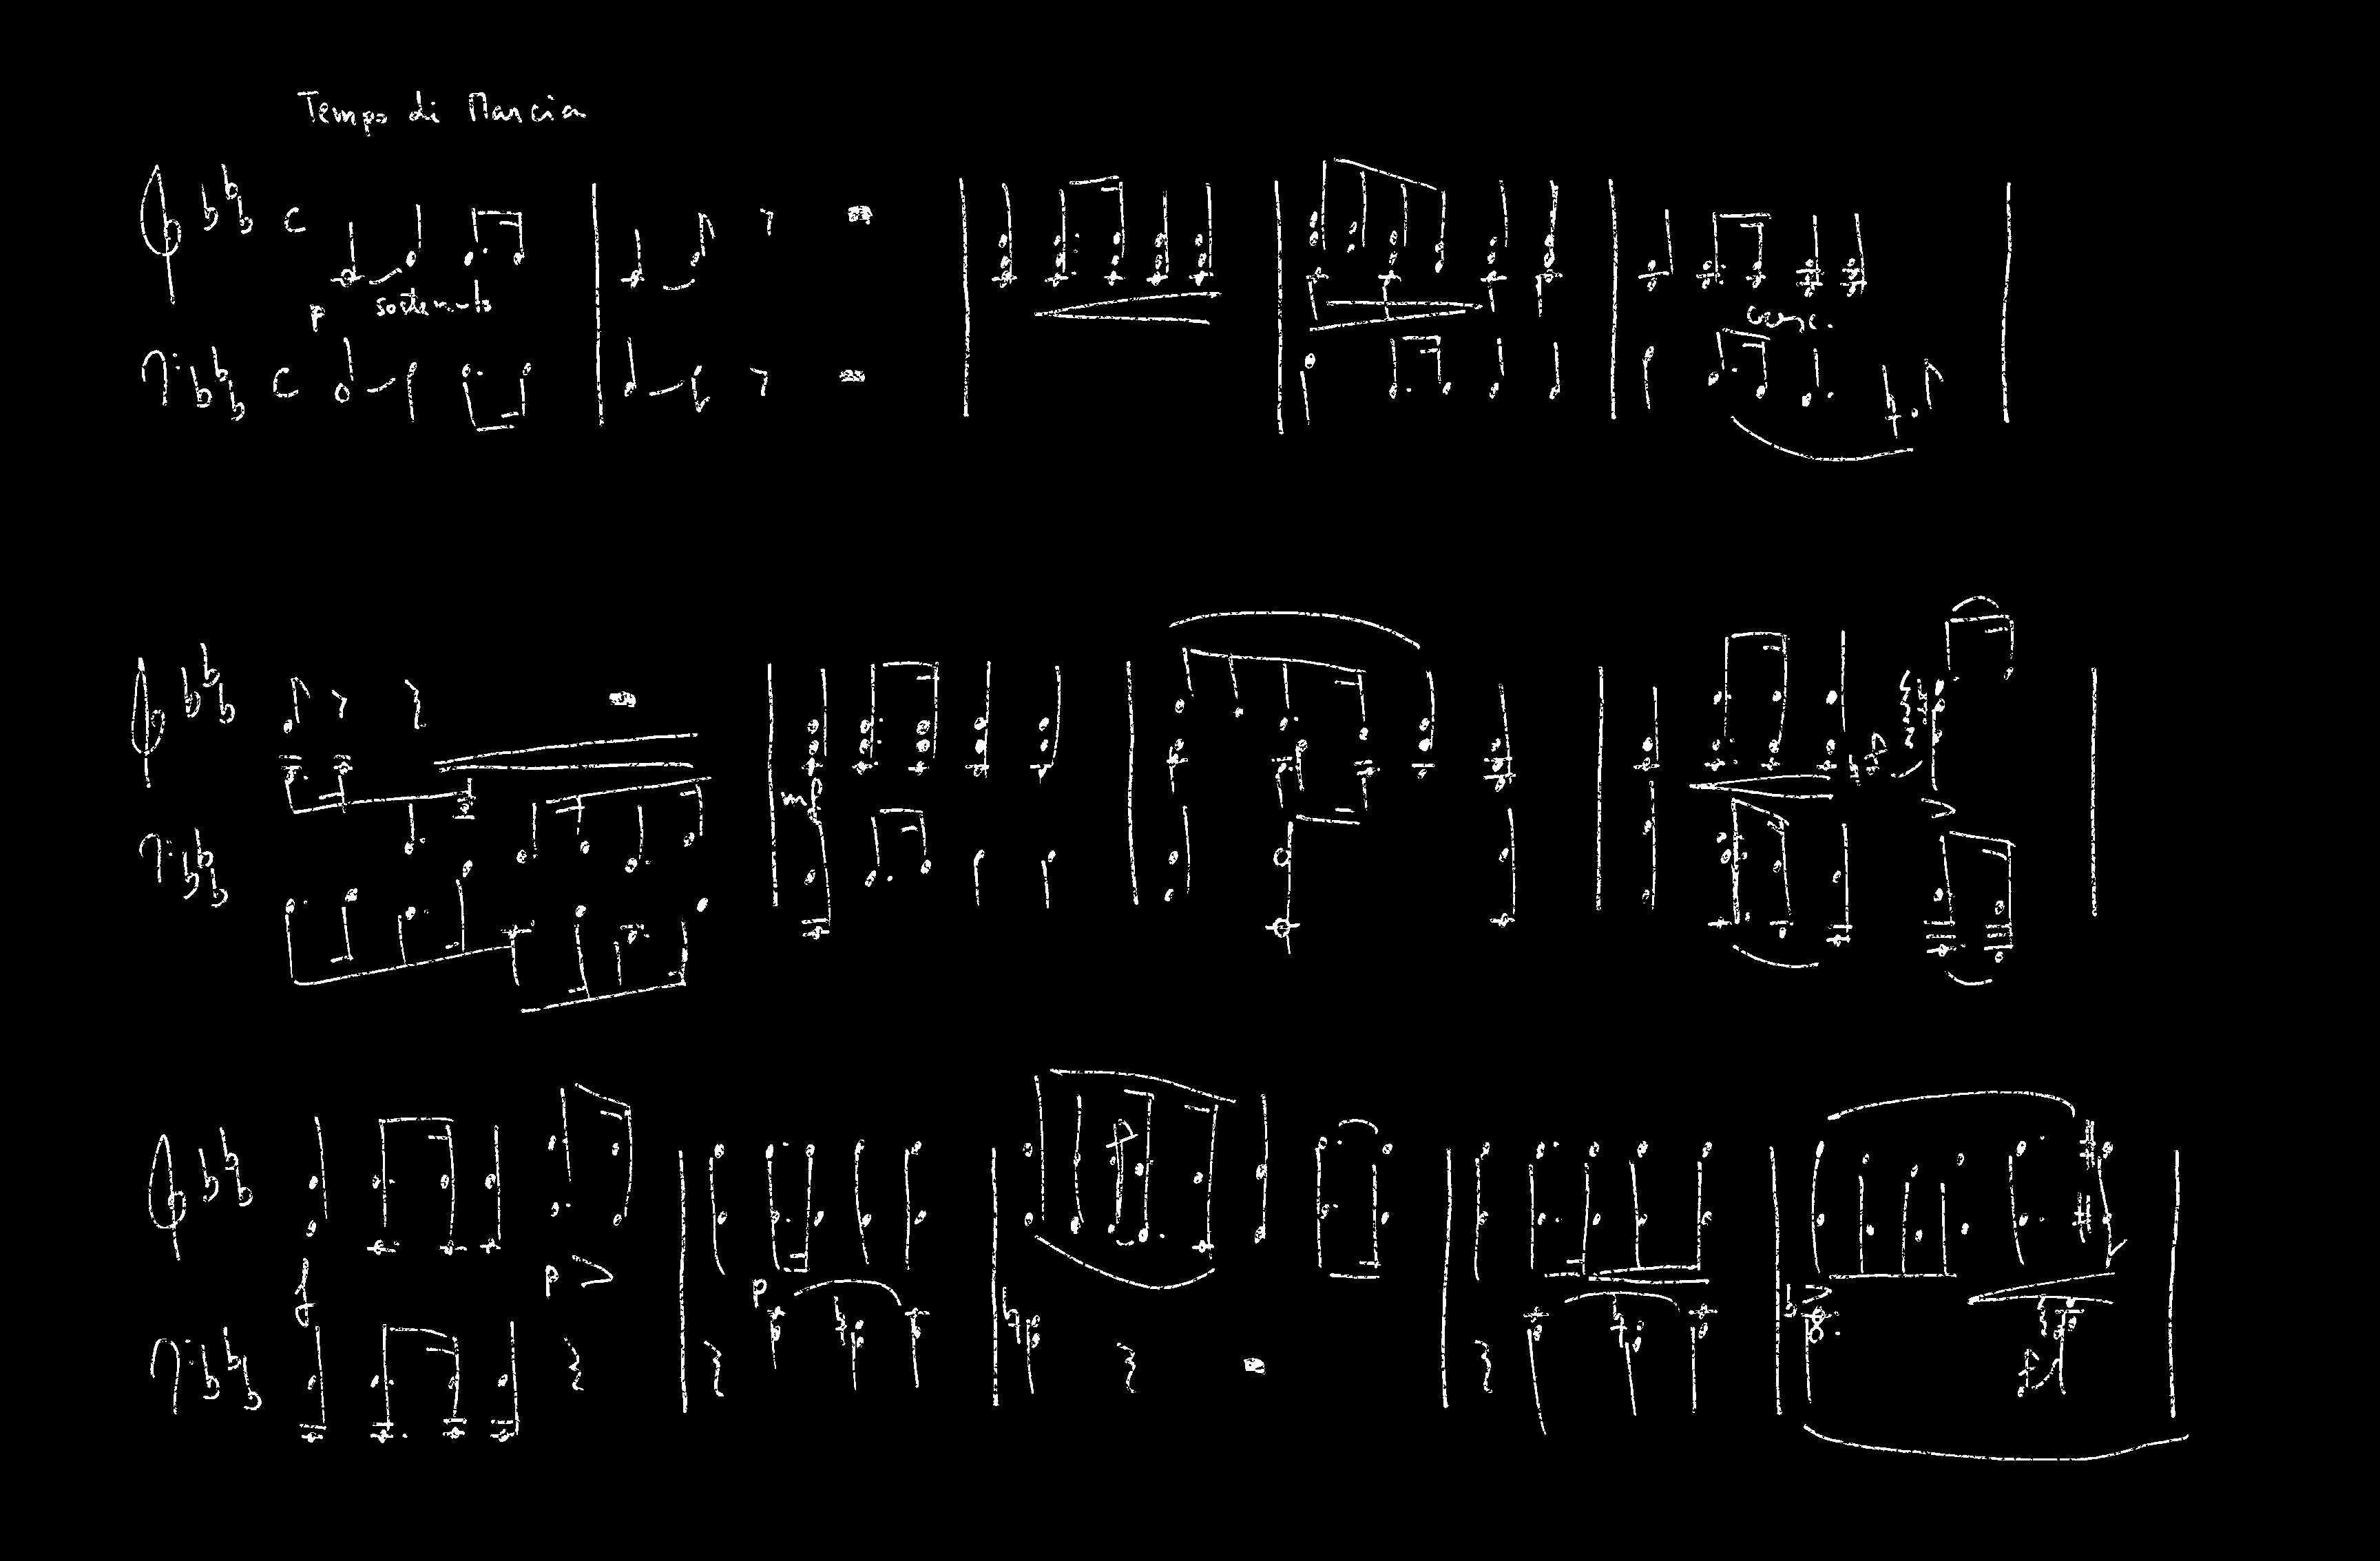 Tempo di Marcia
C
p sostenuto
C
cresc.
mp
f
p
p